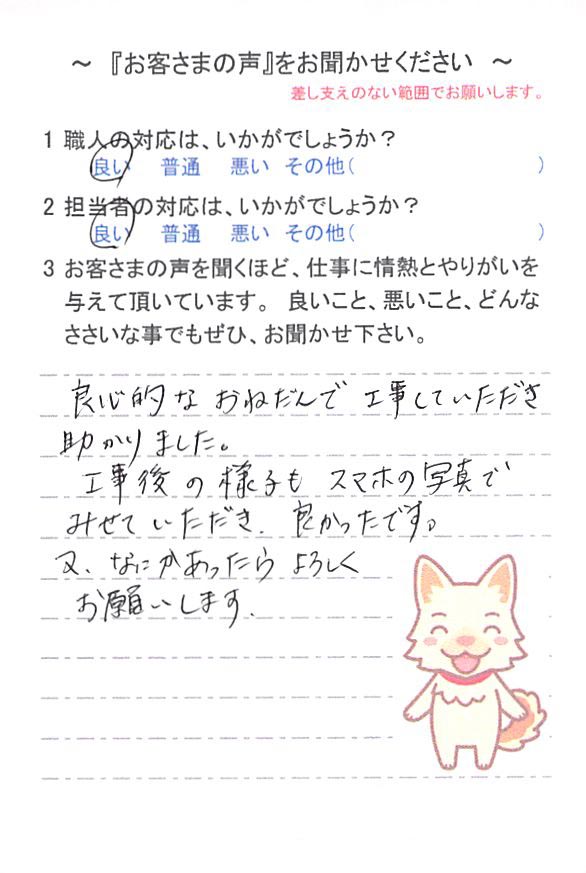 ～ 『お客さまの声』をお聞かせください ～
差し支えのない範囲でお願いします。
1 職人の対応は、いかがでしょうか？
良い 普通 悪い その他( )
2 担当者の対応は、いかがでしょうか？
良い 普通 悪い その他( )
3 お客さまの声を聞くほど、仕事に情熱とやりがいを
与えて頂いています。 良いこと、悪いこと、どんな
ささいな事でもぜひ、お聞かせ下さい。
良心的な おねだんで 工事していただき
助かりました。
工事後の様子も スマホの写真で
みせていただき、良かったです。
又、なにかあったら よろしく
お願いします.